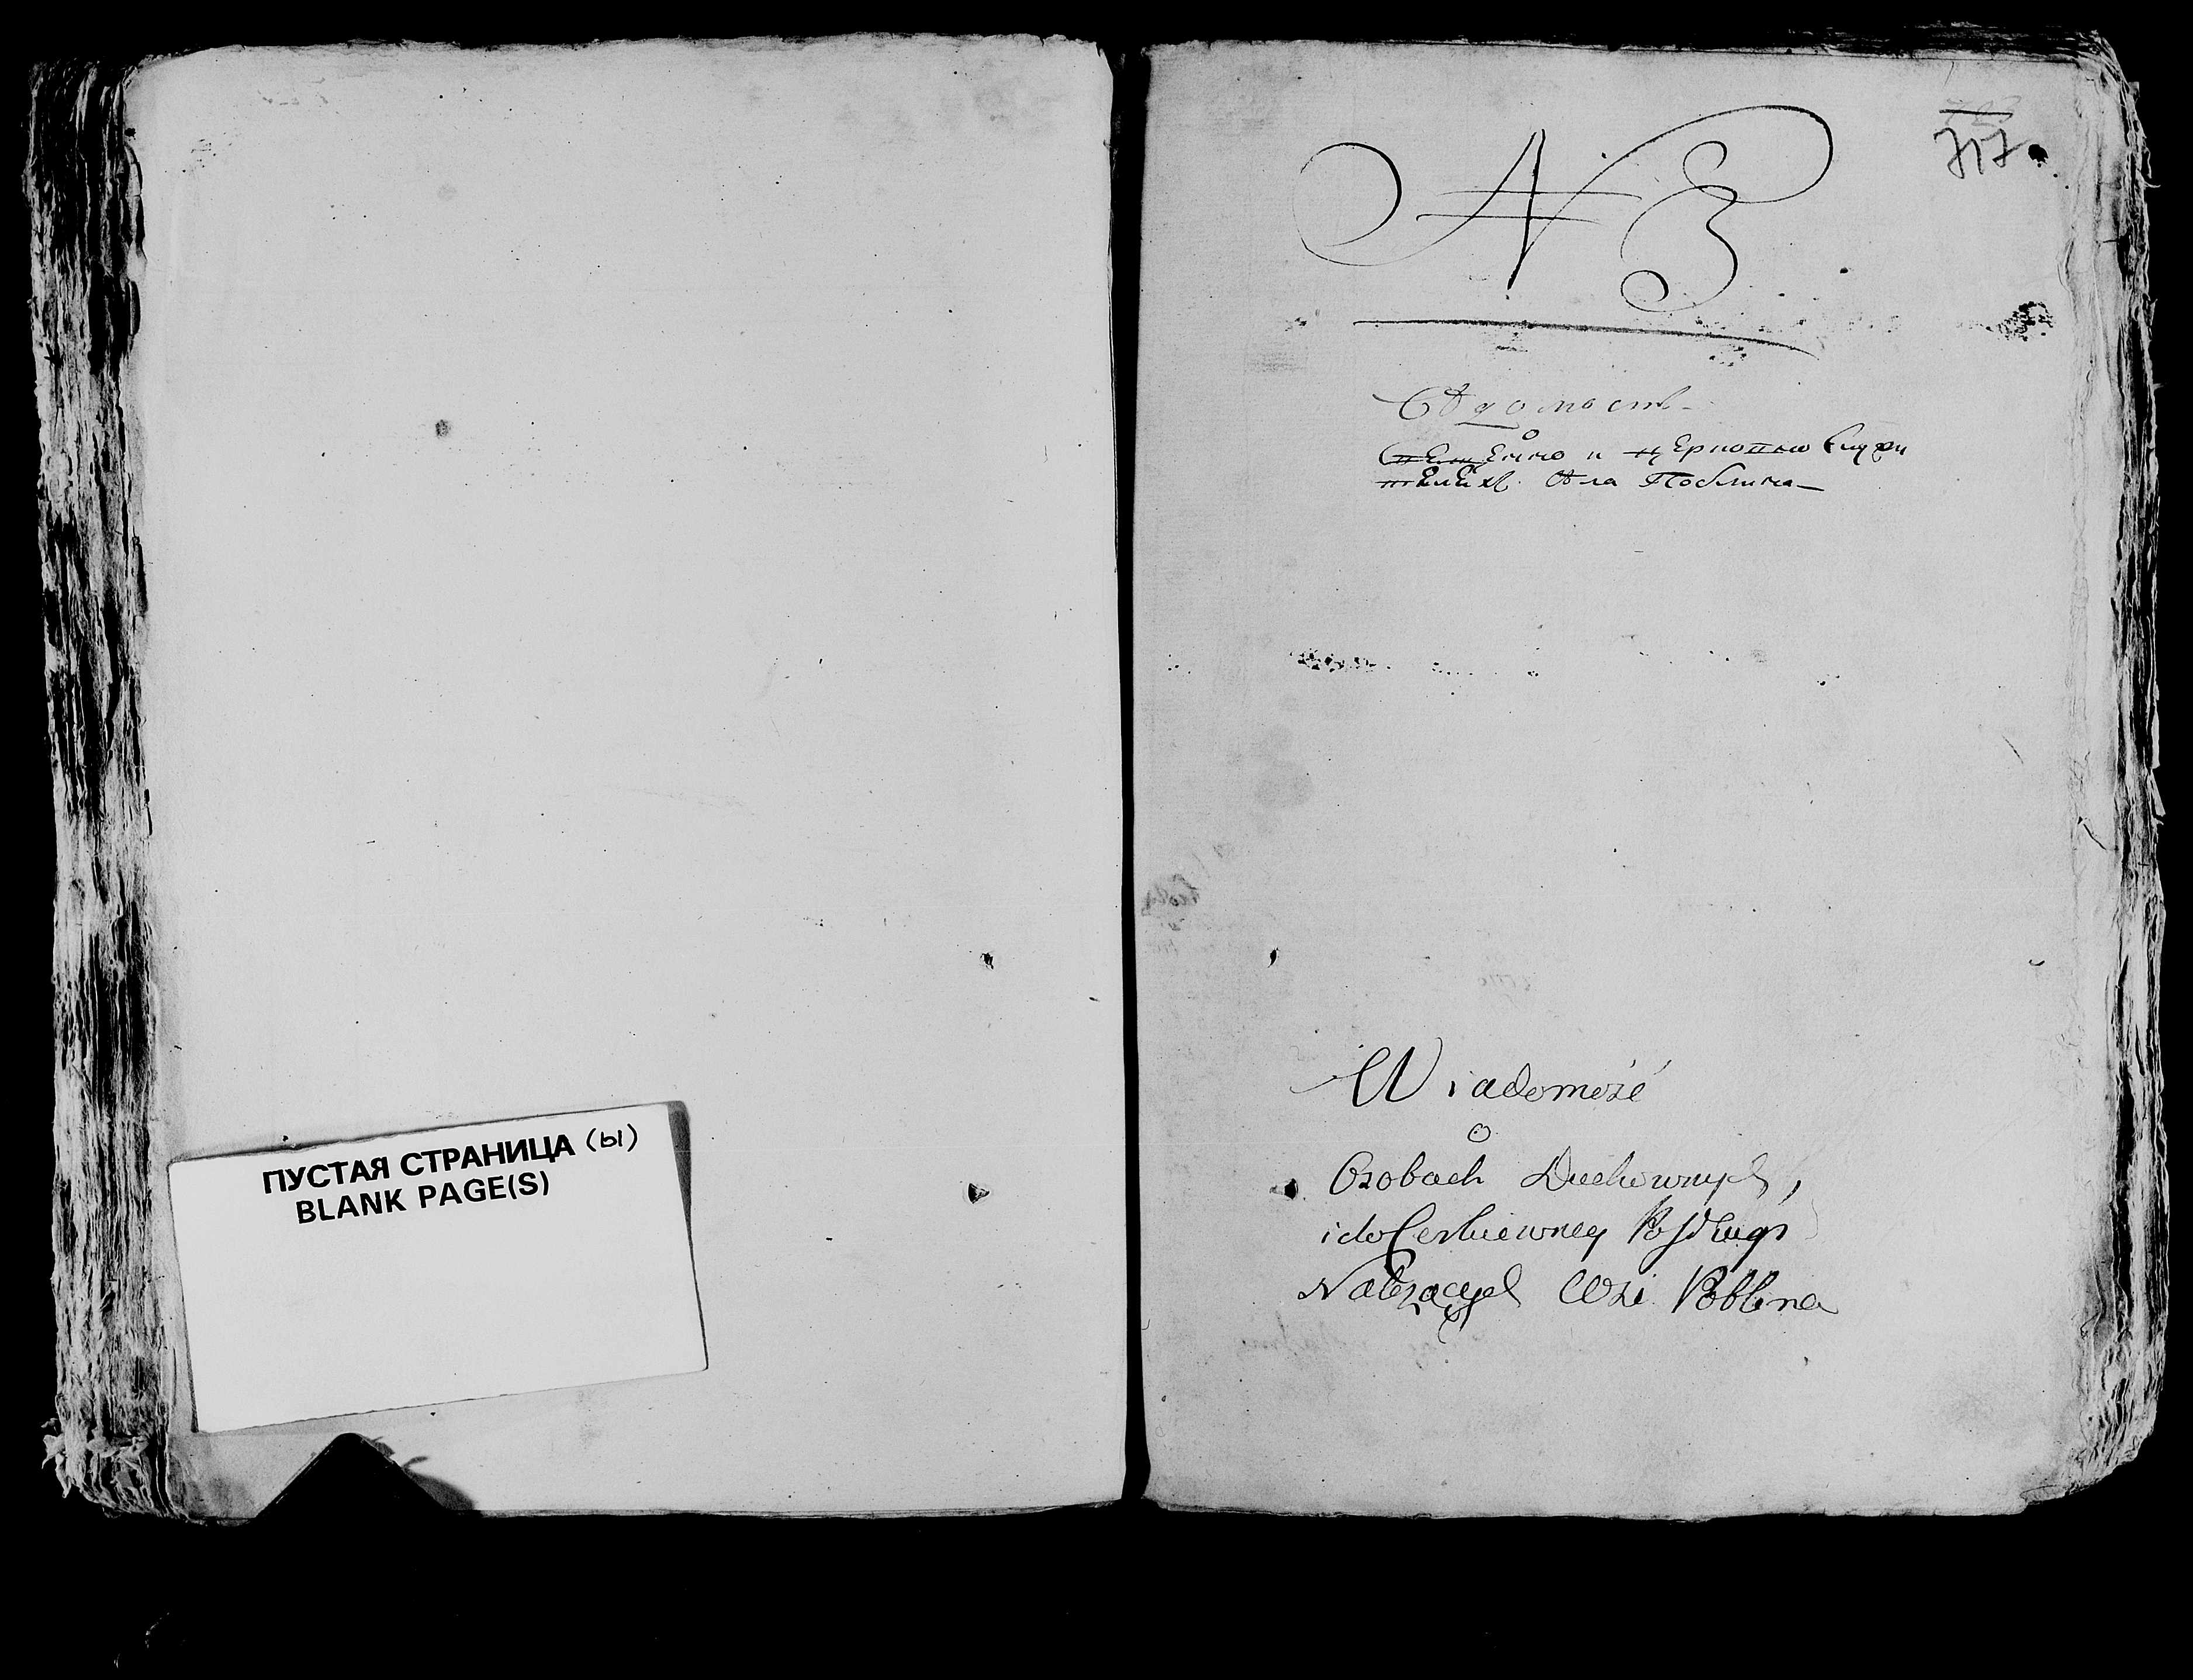 ПУСТАЯ СТРАНИЦА (ы)
BLANK PAGE(S)
717.
N 3
Вѣдомость
о
и церковно служи
телехъ Села Поблина
Wiadomość
o
Osobach Duchownych,
i do Cerkiewney Posługi
Należących Wsi Poblina